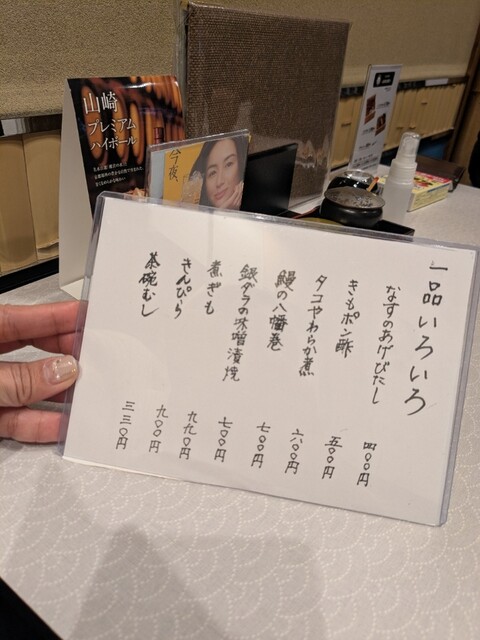 山崎
プレミアム
ハイボール
今夜、
一品いろいろ
なすのあげびたし 四〇〇円
きもポン酢 五〇〇円
タコやわらか煮 六〇〇円
鰻の八幡巻 七〇〇円
銀ダラの味噌漬焼 七〇〇円
煮ぎも 九九〇円
きんぴら 九〇〇円
茶碗むし 三三〇円